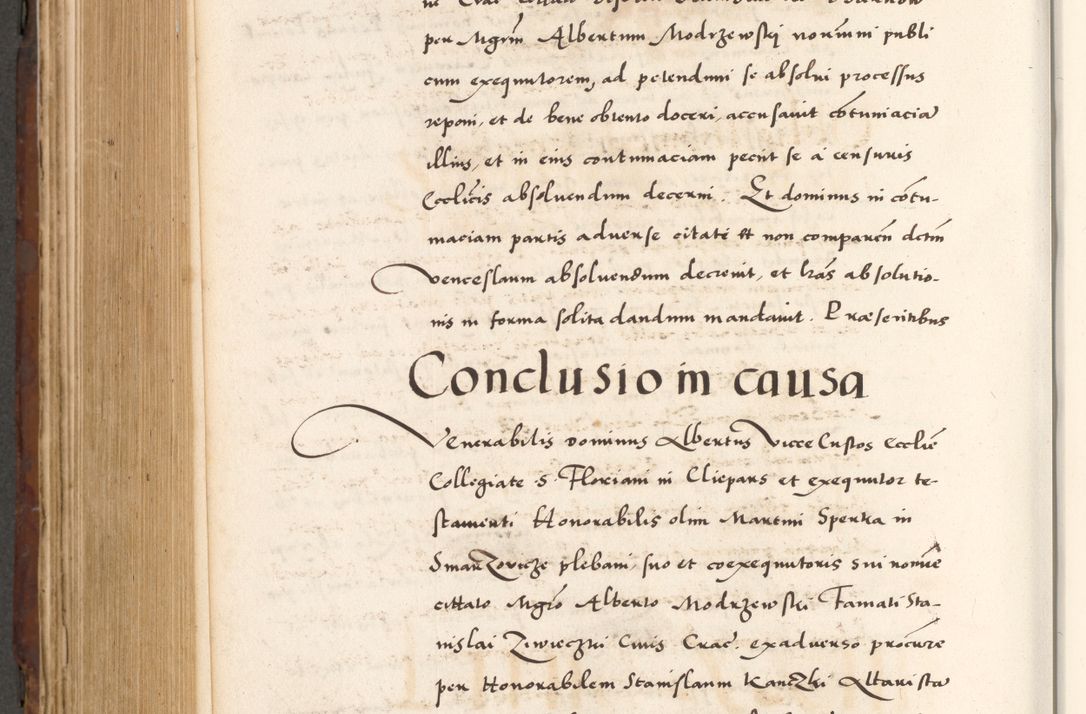 per Mgrm̃ Albertum Modrzewskj nominni publi
cum exequutorem, ad petendum se absolui processus
reponi, et de bene obtento doceri, accusauit cõtumaciã
illius, et in eius contumaciam peciit se a censuris
Eccl̃icis absoluendum decerni. Et dominus in cõtu-
maciam partis aduerse citate et non comparen̄ dctm̄
Venceslaum absoluendum decreuit, et lr̃as absolutio-
nis in forma solita dandum mandauit. Præsentibus
Conclusio in causa
Venerabilis dominus Albertus Vicce Custos Eccliẽ
Collegiate S. Floriani in Clepars et exequutor te-
stamenti Honorabilis olim Martini Sperka in
Smarzovicze plebani, suo et coexequutoris sui nomĩe
cittato Mgrõ Alberto Modrzewski Famati Sta-
nislai Ziwieczki Ciuis Crac̃. exaduerso procũre
per Honorabilem Stanislaum Kanczki Altaristã